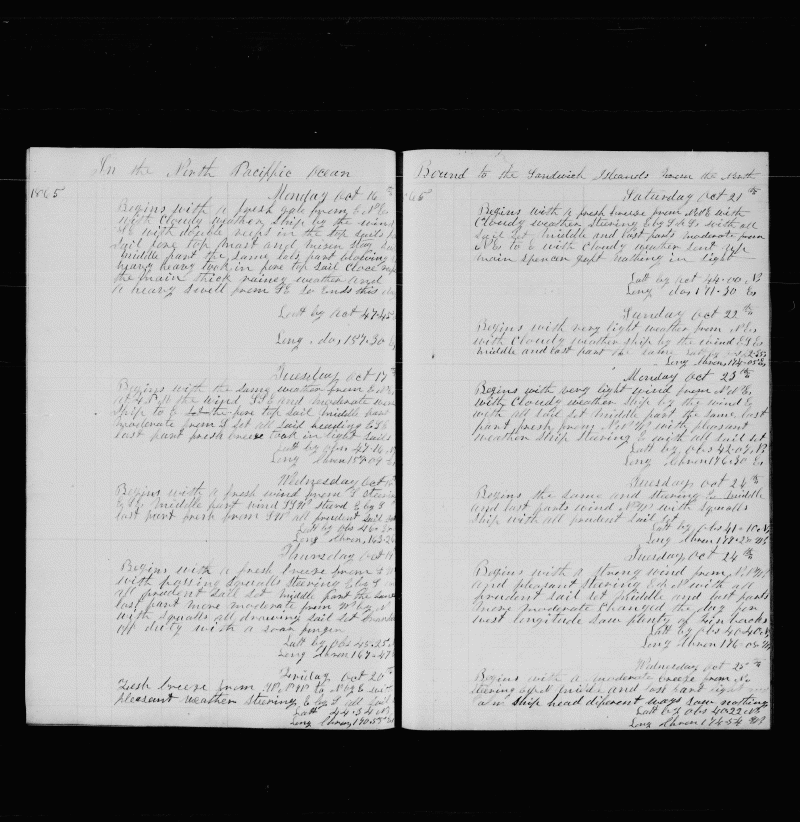 In the North Paciffic Ocean
1865
Monday Oct 16th
Begins with a fresh gale from E N E
with cloudy weather ship by the wind
with double reefs in the top sails
sail fore top mast and misen stay
middle part the same last part blowing
heavy heavy took in fore top sail close
the main thick rainey weather and
a heavy swell from S E So Ends this
Latt by act 47-45
Long do 157-30
Tuesday Oct 17th
Begins with the same weather from
the wind S E and moderate
ship to E the fore top sail middle part
moderate from S set all sail heading
last part fresh breeze took in light sails
Latt by obs 47-16
Long Chron 159-09
Wednesday Oct
Begins with a fresh wind from S steering
E by middle part wind S W steerd E by S
last part fresh from S W all prudent sail
Latt by obs 46-
Long Chron 163-26
Thursday Oct 19
Begins with a fresh breeze from
with passing squalls steering E by S
all prudent sail set middle part the same
last part more moderate from W by N
with squalls all drawing sail set
off duty with a soar finger
Latt by Obs 45-25
Long Chron 167-47
Friday Oct 20
Fresh breeze from W N W to N by E
pleasent weather steering E by S all sail
Latt 44-34 N
Long Chron 170-55
Bound to the Sandwich Isleands from the North
65
Saturday Oct 21th
Begins with a fresh breeze from N N E with
Cloudy weather steering E by S with all
sail set middle and last parts moderate from
N E to E with cloudy weather sent up
main spencer gaft nothing in sight
Latt by act 44-00 N
Long do 171-30 E
Sunday Oct 22th
Begins wish very light weather from N E
with Cloudy weather ship by the wind
middle and last part the same
Long Chron
Monday Oct 23th
Begins with very light wind from N N E
with Cloudy weather ship by the wind E
with all sail set middle part the same last
part fresh from N W with pleasant
weather ship steering E with all sail set
Latt by Obs 42-07 N
Long Chron 176-30 E
Tuesday Oct 24th
Begins the same and steering E middle
and last parts wind N W with squalls
ship with all prudent sail set
Latt by obs 41-10 N
Long Chron 179-
Tuesday Oct 24th
Begins with a strong wind from
and pleasant steering with all
prudent sail set middle and last parts
more moderate changed the day for
west longitude saw plenty of fin backs
Latt by Obs 40-40 N
Long Chron 176-05 W
Wednesday Oct 25th
Begins with a moderate breeze from N
steering middle and last part light
ship head diferent ways saw nothing
Latt by Obs 40-22 N
Long Chron 174-54 W